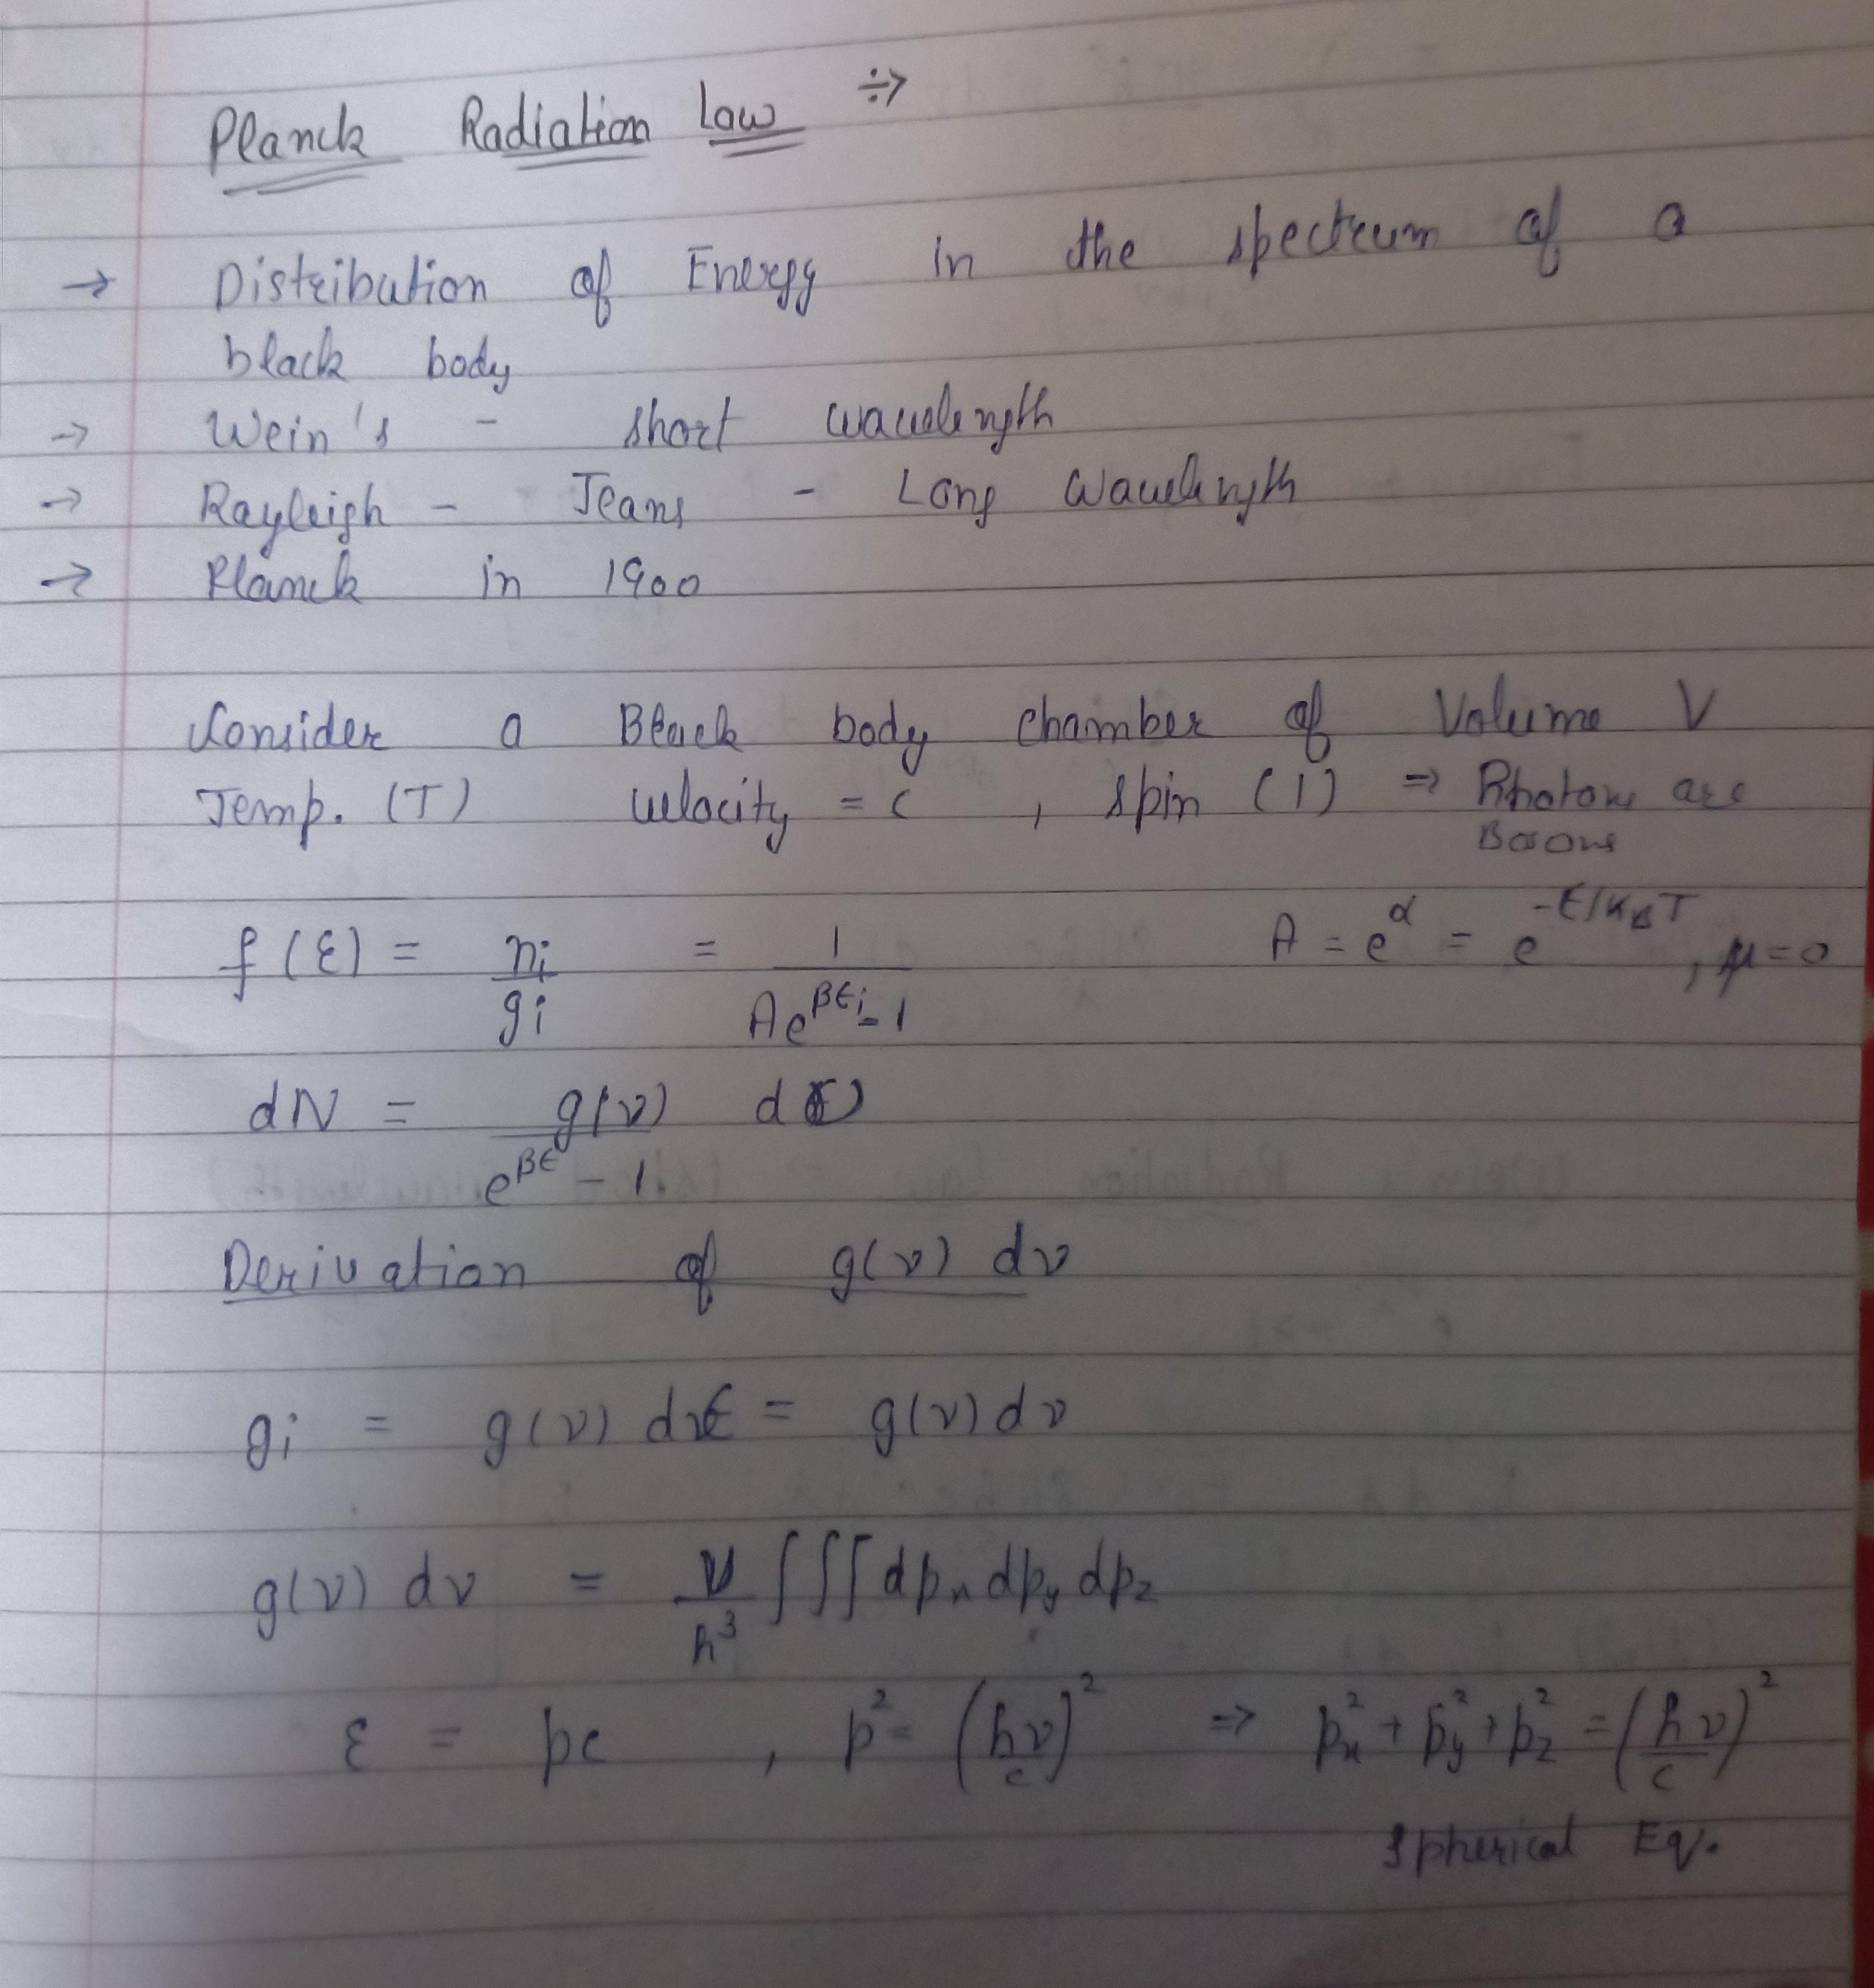 Planck Radiation Law ÷>
→ Distribution of Energy in the spectrum of a
black body
→ Wein's - short wavelength
→ Rayleigh - Jeans - Long Wavelength
→ Planck in 1900
Consider a Black body chamber of Volume V
Temp. (T) velocity = c , spin (1) ⇒ Photons are
Bosons
f(ε) = ni/gi = 1/(Ae^βϵi - 1) A = e^α = e^-E/KBT , μ=0
dN = g(ν)/(e^βϵ - 1) d(ϵ)
Derivation of g(ν) dν
gi = g(ν) dϵ = g(ν) dν
g(ν) dν = V/h³ ∫∫∫ dpx dpy dpz
ε = pc , p² = (hν/c)² ⇒ px² + py² + pz² = (hν/c)²
Spherical Eq.